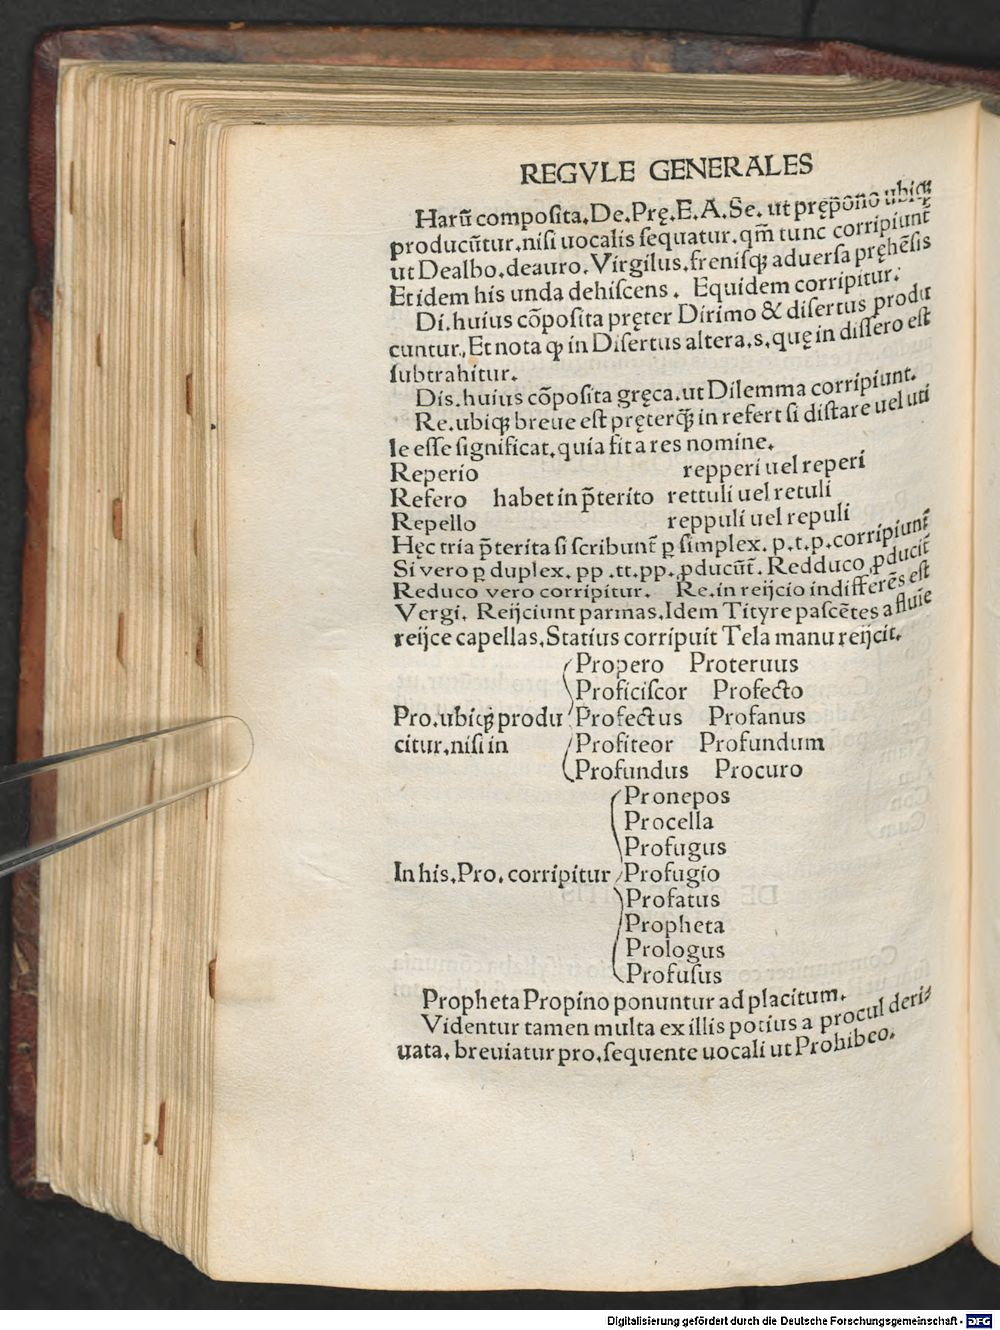 REGVLE GENERALES
Harū compoſita.De.Prę.E.A.Se. ut prępono ubiqꝫ
producūtur.niſi uocalis ſequatur.qm̄ tunc corripiunt̄
ut Dealbo.deauro.Virgilus.freniſqꝫ aduerſa pręhēſis
Et idem his unda dehiſcens. Equidem corripitur.
Di.huius cōpoſita pręter Dirimo & diſertus produ
cuntur.Et nota ꝙ in Diſertus altera.s.quę in diſſero eſt
ſubtrahitur.
Dis.huius cōpoſita gręca.ut Dilemma corripiunt.
Re.ubiqꝫ breue eſt pręterꝙ̄ in refert ſi diſtare uel uti
le eſſe ſignificat.quia fit a res nomine.
Reperio repperi uel reperi
Refero habet in p̄terito rettuli uel retuli
Repello reppuli uel repuli
Hęc tria p̄terita ſi ſcribunt̄ ꝑ ſimplex. p.t.p.corripiunt̄
Si vero ꝑ duplex. pp .tt.pp.ꝓducūt̄. Redduco.ꝓducit̄
Reduco vero corripitur. Re.in reijcio indifferēs eſt
Vergi. Reijciunt parmas.Idem Tityre paſcētes a fluīe
reijce capellas.Statius corripuit Tela manu reijcit.
Propero Proteruus
Proficiſcor Profecto
Pro.ubiqꝫ produ Profectus Profanus
citur.niſi in Profiteor Profundum
Profundus Procuro
Pronepos
Procella
Profugus
In his.Pro.corripitur Profugio
Profatus
Propheta
Prologus
Profuſus
Propheta Propino ponuntur ad placitum.
Videntur tamen multa ex illis potius a procul deri
uata. breuiatur pro.ſequente uocali ut Prohibeo.
Digitalisierung gefördert durch die Deutsche Forschungsgemeinschaft - DFG